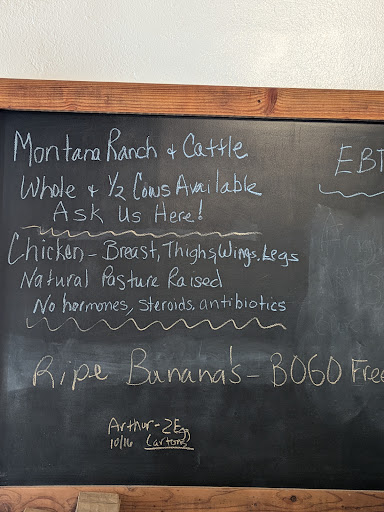 Montana Ranch & Cattle
Whole & 1/2 Cows Available
Ask Us Here!
EBT
Chicken - Breast, Thighs, Wings, Legs
Natural Pasture Raised
No hormones, steroids, antibiotics
Ripe Banana's - BOGO Free
Arthur - 2 Egg
10/16 Cartons